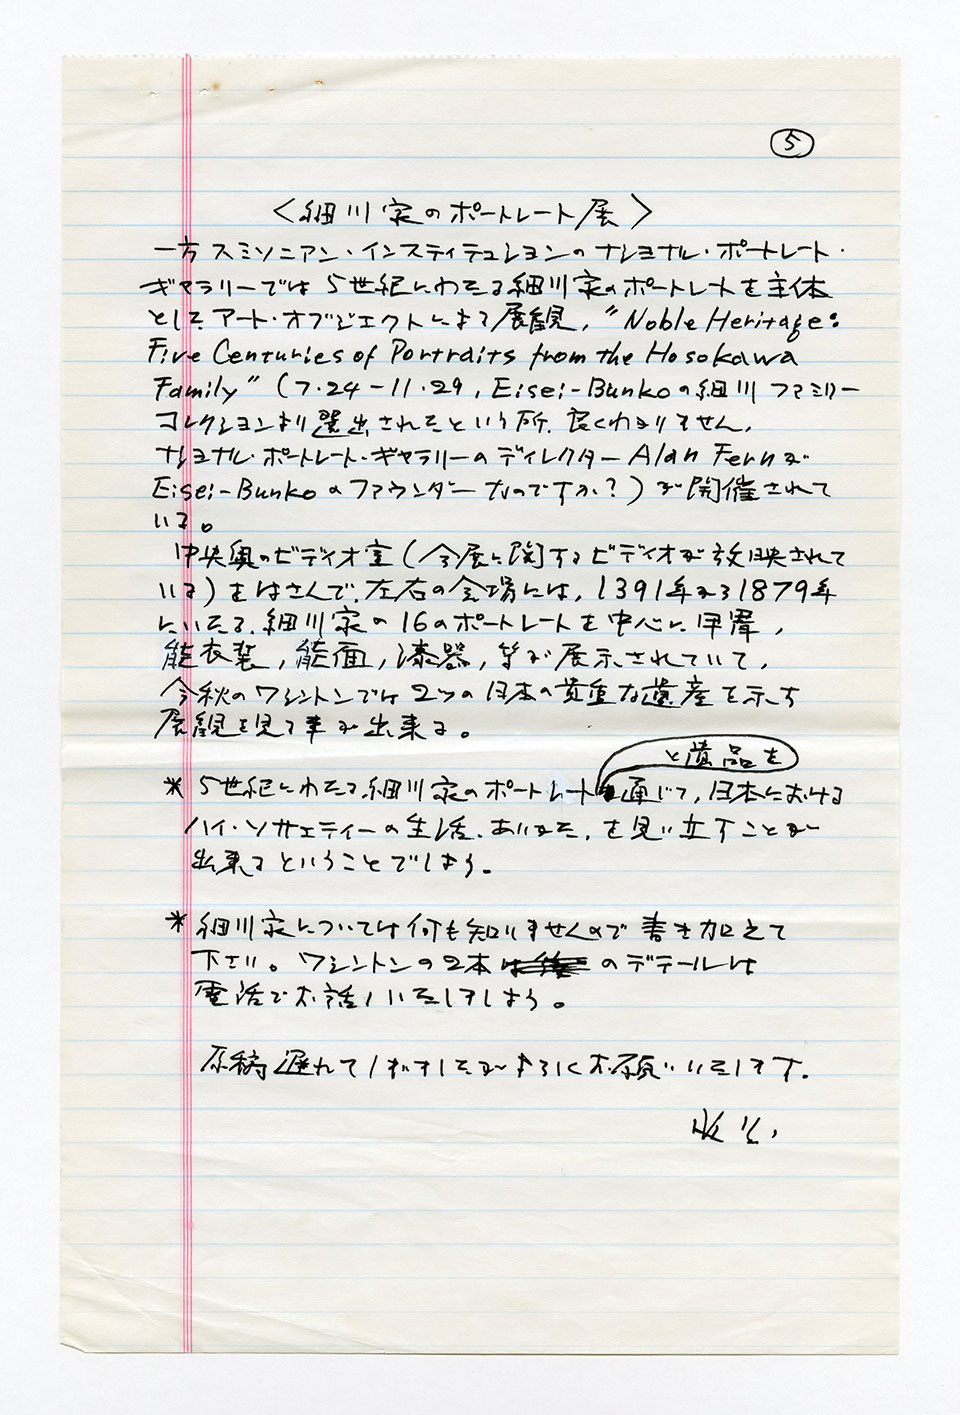 ⑤
〈細川家のポートレート展〉
一方スミソニアン・インスティテュションのナショナル・ポートレート・
ギャラリーでは5世紀にわたる細川家のポートレートを主体
として、アート・オブジェクトによる展観、"Noble Heritage:
Five Centuries of Portraits from the Hosokawa
Family" (7・24－11・29, Eisei-Bunkoの細川ファミリー
コレクションより選出されたという所、良くわかりません、
ナショナル・ポートレート・ギャラリーのディレクターAlan Fernが
Eisei-Bunkoのファウンダーなのですか?)が開催されて
いる。
中央奥のビディオ室(今展に関するビディオが放映されて
いる)をはさんで、左右の会場には、1391年から1879年
にいたる、細川家の16のポートレートを中心に甲冑,
能衣装,能面,漆器,等が展示されていて,
今秋のワシントンでは2つの日本の貴重な遺産を示す
展観を見る事が出来る。
と遺品を
*5世紀にわたる細川家のポートレート通じて,日本における
ハイ・ソサエティーの生活、ありかた、を見い立すことが
出来るということでしょう。
*細川家については何も知りませんので書き加えて
下さい。ワシントンの2本のデテールは
電話でお話しいたしましょう。
原稿遅れてしまいましたがよろしくお願いいたします。